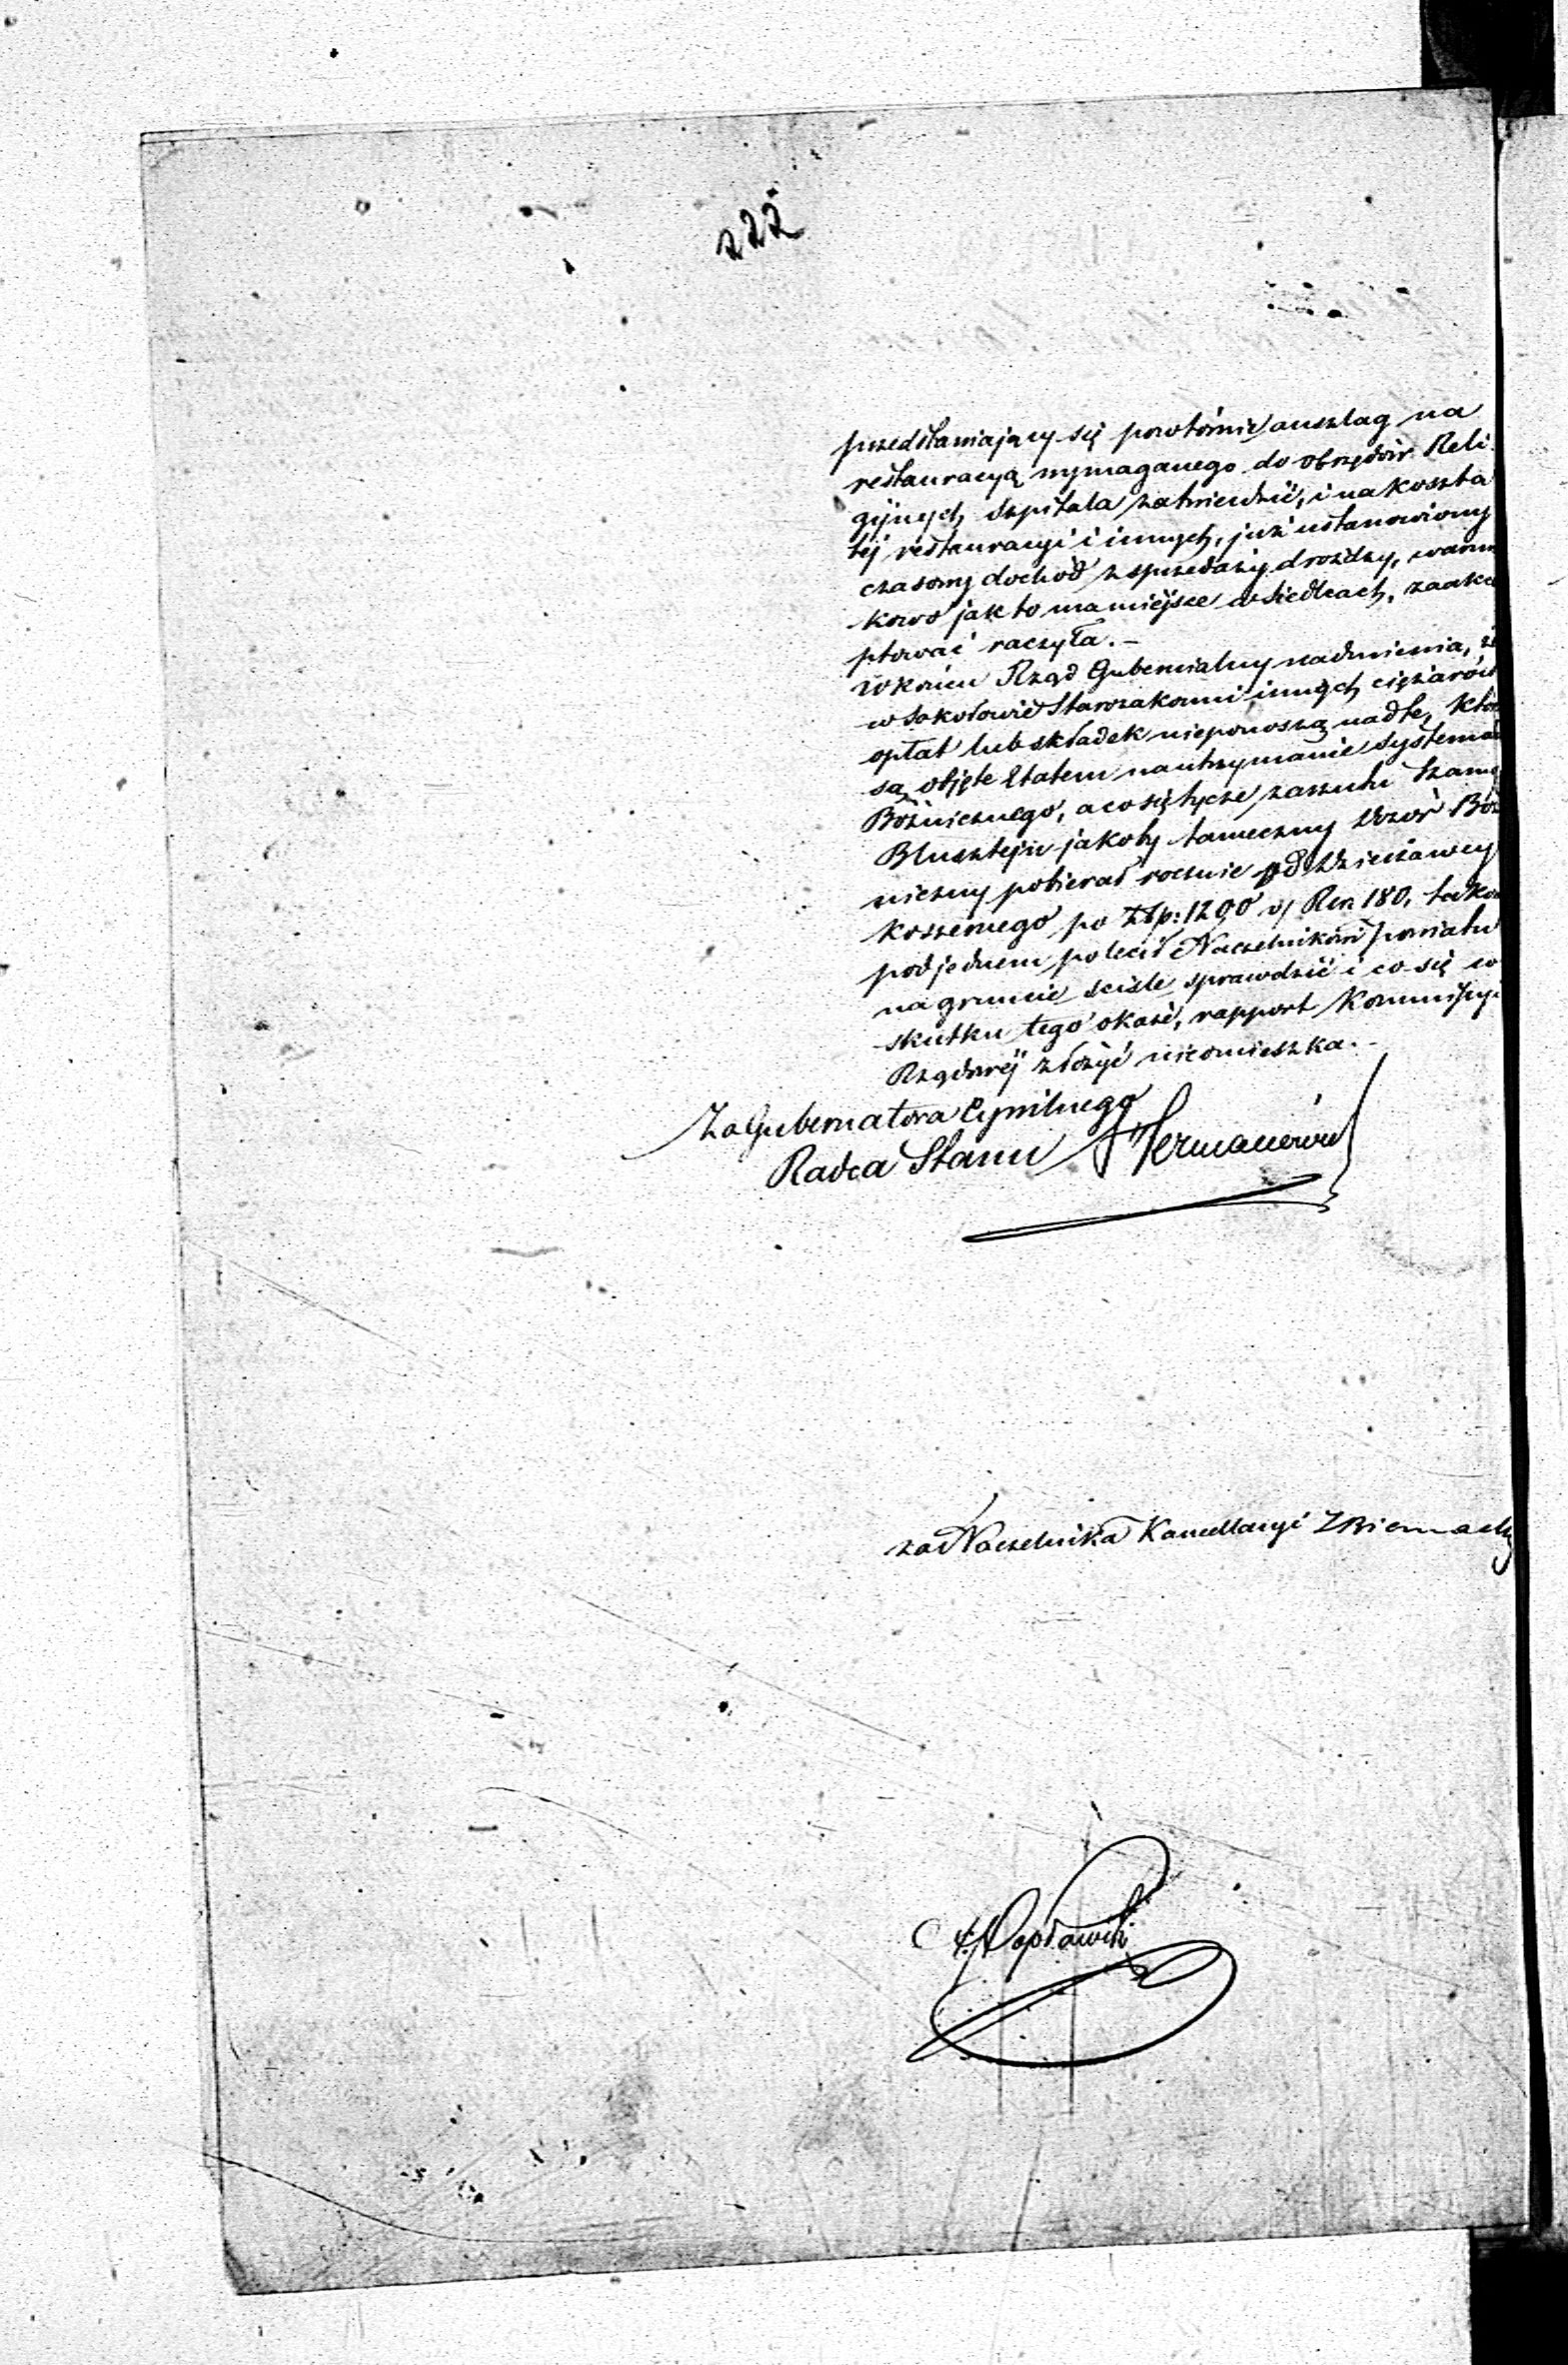 222
przedstawiający się powtórnie anszlag na
restauracyą wymaganego do obrzędów Reli-
gijnych Szpitala zatwierdzić, i na koszta
téj restauracyi i innych, już ustanowiony
czasowy dochód z sprzedaży drożdzy, warun
kowo jak to ma miéjsce w Siedlcach, zaakce
ptować raczyła.-
W końcu Rząd Gubernialny nadmienia, że
w Sokołowie Starozakonni innych ciężarów
opłat lub składek nieponoszą nad te, któr
są objęte Etatem na utrzymanie Systemat
Bóżnicznego, a co się tycze zarzutu Szamy
Blusztejn jakoby tameczny Dozór Bóż
niczny pobierał rocznie od Dzierżawcy
koszernego po Złp: 1200 v/ Rsr. 180, takow
pod jednem polecił Naczelnikowi powiatu
na gruncie ściśle sprawdzić i co się w
skutku tego okaże, rapport Kommissyi
Rządowéj złożyć nieomieszka.-
Za Gubernatora Cywilnego
Radca Stanu Hermanowicz
za Naczelnika Kancellaryi
Popławski